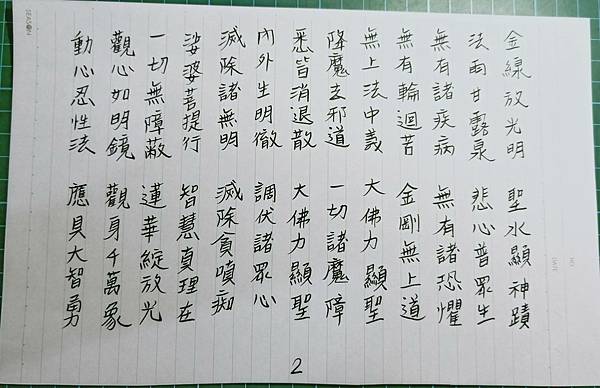 金線放光明 聖水顯神蹟
法雨甘露泉 悲心普眾生
無有諸疾病 無有諸恐懼
無有輪迴苦 金剛無上道
無上法中義 大佛力顯聖
降魔去邪道 一切諸魔障
悉皆消退散 大佛力顯聖
內外生明徹 調伏諸眾心
滅除諸無明 滅除貪嗔痴
娑婆菩提行 智慧真理在
一切無障蔽 蓮華綻放光
觀心如明鏡 觀身千萬象
動心忍性法 應具大智勇
2
SEASON
NO.
DATE